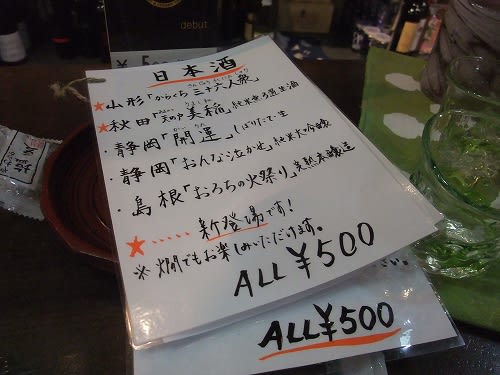 debut
¥5
日本酒
★山形「からくち三十六人衆」
★秋田「天の戸 美稲」純米無ろ過生酒
・静岡「開運」しぼりたて生
・静岡「おんな泣かせ」純米大吟醸
・島根「おろちの火祭り」
★‥‥‥新登場です!
※燗でもお楽しみいただけます。
ALL ¥500
さい。
ALL¥500